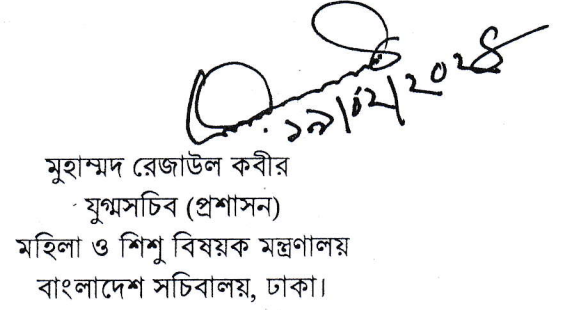 ১৯/০২/২০২৪
মুহাম্মদ রেজাউল কবীর
যুগ্মসচিব (প্রশাসন)
মহিলা ও শিশু বিষয়ক মন্ত্রণালয়
বাংলাদেশ সচিবালয়, ঢাকা।